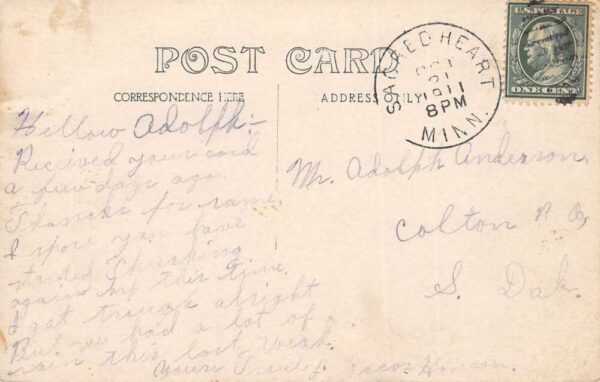 POST CARD
CORRESPONDENCE HERE
ADDRESS ONLY
SACRED HEART
OCT
21
1911
8PM
MINN.
U.S. POSTAGE
ONE CENT
Hellow Adolph:-
Recieved your card
a few days ago.
Thanks for same.
I spose you have
started Threshing
again by this time.
I got trough alright
But we had a lot of
rain this last weak.
Yours Truly Oscar
Mr. Adolph Anderson,
Colton P. O,
S. Dak.